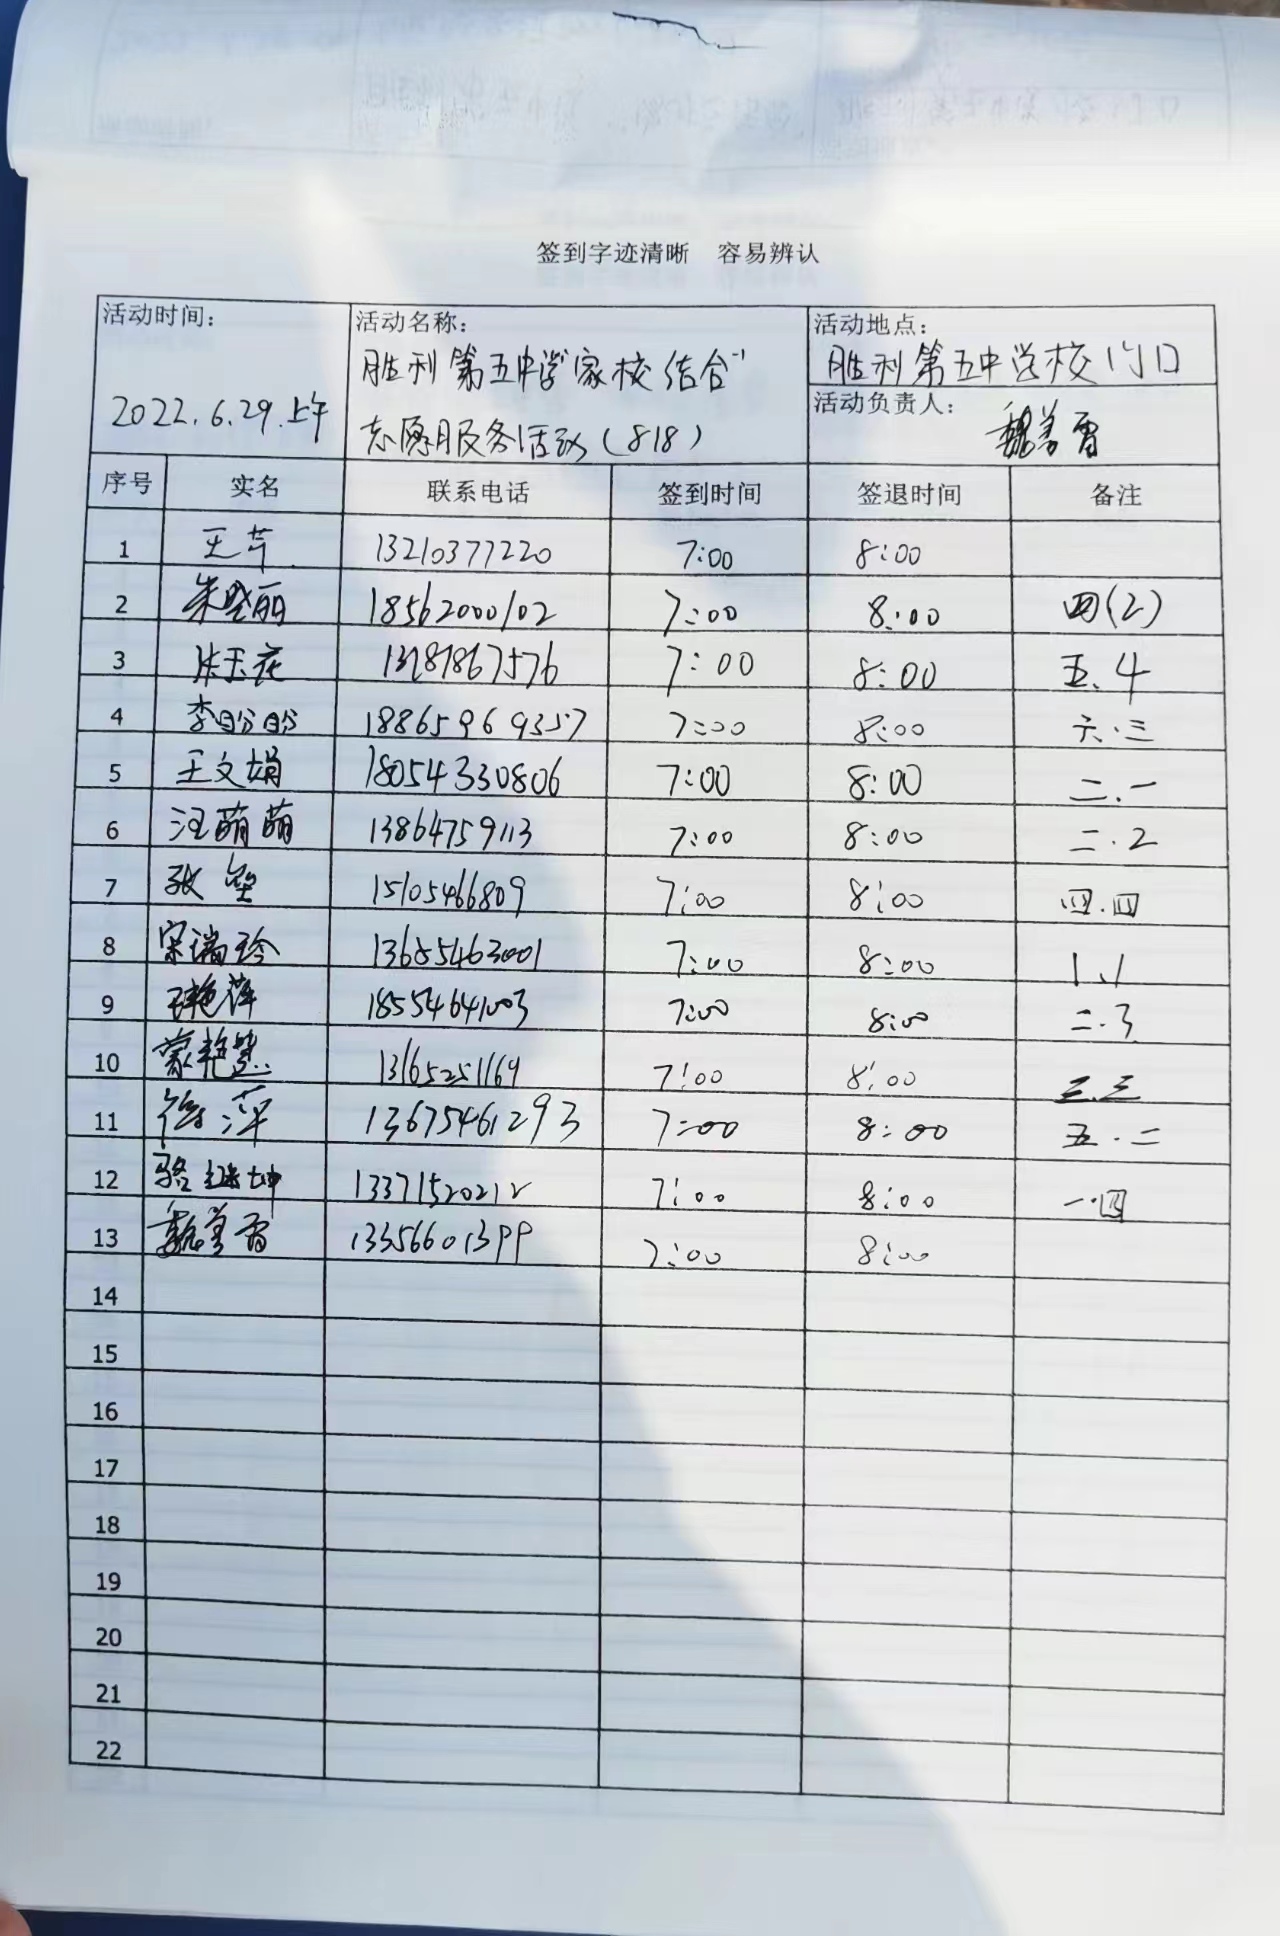 签到字迹清晰 容易辨认
活动时间：
2022.6.29.上午
活动名称：
胜利第五中学"家校结合"
志愿服务活动（818）
活动地点：
胜利第五中学校门口
活动负责人：
魏美霞
序号 实名 联系电话 签到时间 签退时间 备注
1 王芹 13210377220 7:00 8:00
2 朱坚丽 18562000102 7:00 8:00 四(2)
3 张玉花 7:00 8:00 五、4
4 李盼盼 18865969357 7:00 8:00 六.三
5 王文娟 18054330806 7:00 8:00 二.一
6 汪萌萌 13864759113 7:00 8:00 二.2
7 张莹 15105466809 7:00 8:00 四.四
8 宋瑞玲 13655463001 7:00 8:00 1.1
9 王艳萍 18554641003 7:00 8:00 二.3
10 蒙艳慧 13165251169 7:00 8:00 三.三
11 徐萍 13675461293 7:00 8:00 五.二
12 骆继坤 13371520212 7:00 8:00 一.四
13 魏美霞 13356601399 7:00 8:00
14
15
16
17
18
19
20
21
22